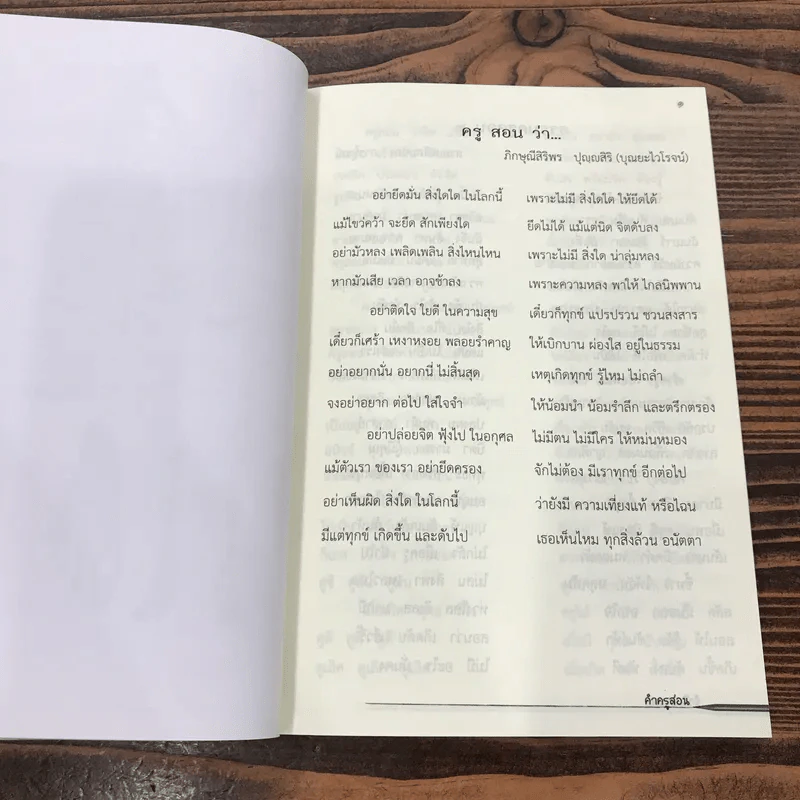 ครู สอน ว่า...
ภิกษุณีสิริพร ปุญฺญสิริ (บุณยะไวโรจน์)
อย่ายึดมั่น สิ่งใดใด ในโลกนี้ เพราะไม่มี สิ่งใดใด ให้ยึดได้
แม้ไขว่คว้า จะยึด สักเพียงใด ยึดไม่ได้ แม้แต่นิด จิตดับลง
อย่ามัวหลง เพลิดเพลิน สิ่งไหนไหน เพราะไม่มี สิ่งใด น่าลุ่มหลง
หากมัวเสีย เวลา อาจช้าลง เพราะความหลง พาให้ ไกลนิพพาน
อย่าติดใจ ใยดี ในความสุข เดี๋ยวก็ทุกข์ แปรปรวน ชวนสงสาร
เดี๋ยวก็เศร้า เหงาหงอย พลอยรำคาญ ให้เบิกบาน ผ่องใส อยู่ในธรรม
อย่าอยากนั่น อยากนี่ ไม่สิ้นสุด เหตุเกิดทุกข์ รู้ไหม ไม่ถลำ
จงอย่าอยาก ต่อไป ใส่ใจจำ ให้น้อมนำ น้อมรำลึก และตรึกตรอง
อย่าปล่อยจิต ฟุ้งไป ในอกุศล ไม่มีตน ไม่มีใคร ให้หม่นหมอง
แม้ตัวเรา ของเรา อย่ายึดครอง จักไม่ต้อง มีเราทุกข์ อีกต่อไป
อย่าเห็นผิด สิ่งใด ในโลกนี้ ว่ายังมี ความเที่ยงแท้ หรือไฉน
มีแต่ทุกข์ เกิดขึ้น และดับไป เธอเห็นไหม ทุกสิ่งล้วน อนัตตา
คำครูสอน